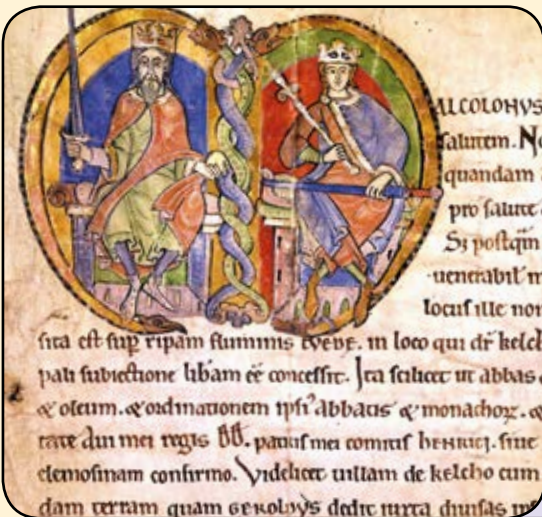 ALCOLONVS
salutem. No
quandam
pro salute
Sꝫ postqͣm
uenerabil' m
locus ille non
sita est sup ripam fluminis tvede. in loco qui dr̄ kelch
pali subiectione lib̄am ēē concessit. Ita scilicet ut abbas
& oleum. & ordinationem ipsiꝰ abbatis & monachoꝝ. &
tate dn̄i mei regis DD. patruͥ mei comitis henrici. siue
elemosinam confirmo. Videlicet uillam de kelcho cum
dam terram quam GEROLDVS dedit iuxta diuisas